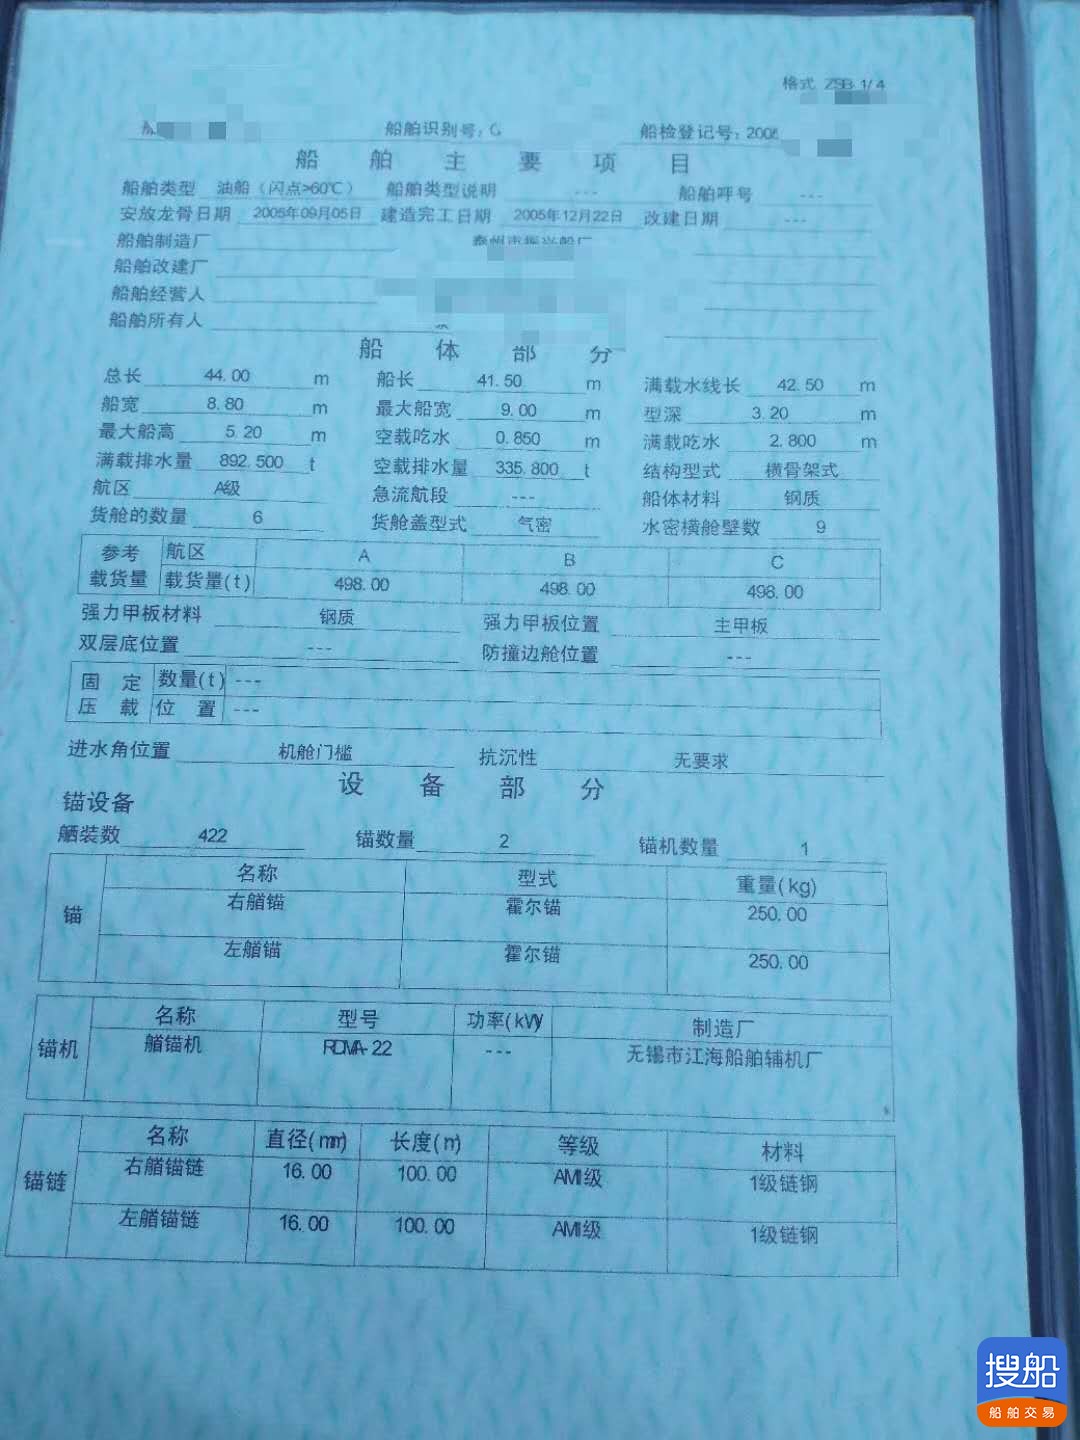 格式 ZSB.1/4
船舶识别号：C 船检登记号：2005
船 舶 主 要 项 目
船舶类型 油船（闪点>60℃） 船舶类型说明 --- 船舶呼号 ---
安放龙骨日期 2005年09月05日 建造完工日期 2005年12月22日 改建日期 ---
船舶制造厂 泰州市振兴船厂
船舶改建厂
船舶经营人
船舶所有人
船 体 部 分
总长 44.00 m 船长 41.50 m 满载水线长 42.50 m
船宽 8.80 m 最大船宽 9.00 m 型深 3.20 m
最大船高 5.20 m 空载吃水 0.850 m 满载吃水 2.800 m
满载排水量 892.500 t 空载排水量 335.800 t 结构型式 横骨架式
航区 A级 急流航段 --- 船体材料 钢质
货舱的数量 6 货舱盖型式 气密 水密横舱壁数 9
参考 航区 A B C
载货量 载货量(t) 498.00 498.00 498.00
强力甲板材料 钢质 强力甲板位置 主甲板
双层底位置 --- 防撞边舱位置 ---
固 定 数量(t) ---
压 载 位 置 ---
进水角位置 机舱门槛 抗沉性 无要求
设 备 部 分
锚设备
舾装数 422 锚数量 2 锚机数量 1
锚 名称 型式 重量(kg)
右艏锚 霍尔锚 250.00
左艏锚 霍尔锚 250.00
锚机 名称 型号 功率(kW) 制造厂
艏锚机 RDMA-22 --- 无锡市江海船舶辅机厂
锚链 名称 直径(mm) 长度(m) 等级 材料
右艏锚链 16.00 100.00 AM1级 1级链钢
左艏锚链 16.00 100.00 AM1级 1级链钢
搜船
船舶交易